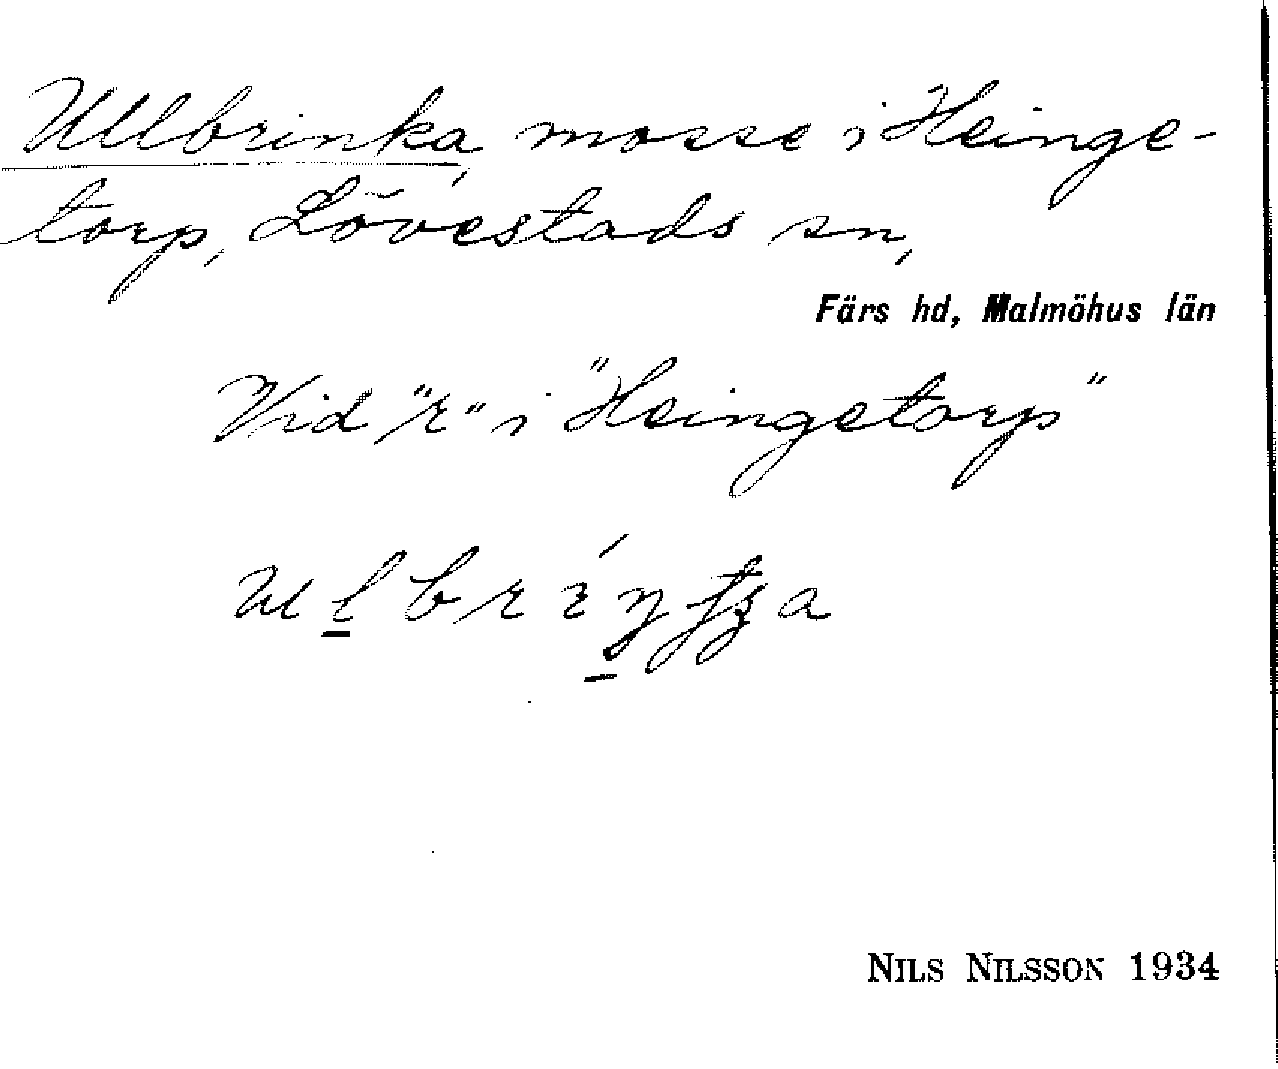 Ullbrinka, mosse i Heinge-
torp, Lövestads sn,
Färs hd, Malmöhus län
Vid "r" i "Heingetorp"
NILS NILSSON 1934